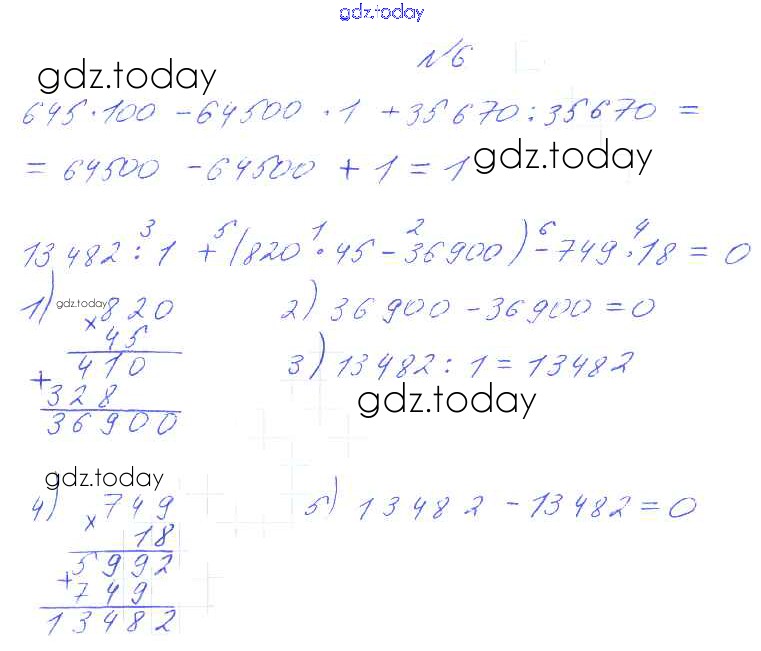 gdz.today
№6
gdz.today
645·100 -64500 ·1 +35670:35670 =
= 64500 -64500 + 1 = 1
gdz.today
3 5 1 2 6 4
13482:1 +(820·45-36900)-749·18=0
1) gdz.today
×820
45
410
+
328
36900
2) 36900-36900=0
3) 13482:1=13482
gdz.today
gdz.today
4) ×749
18
5992
+
749
13482
5) 13482 -13482=0